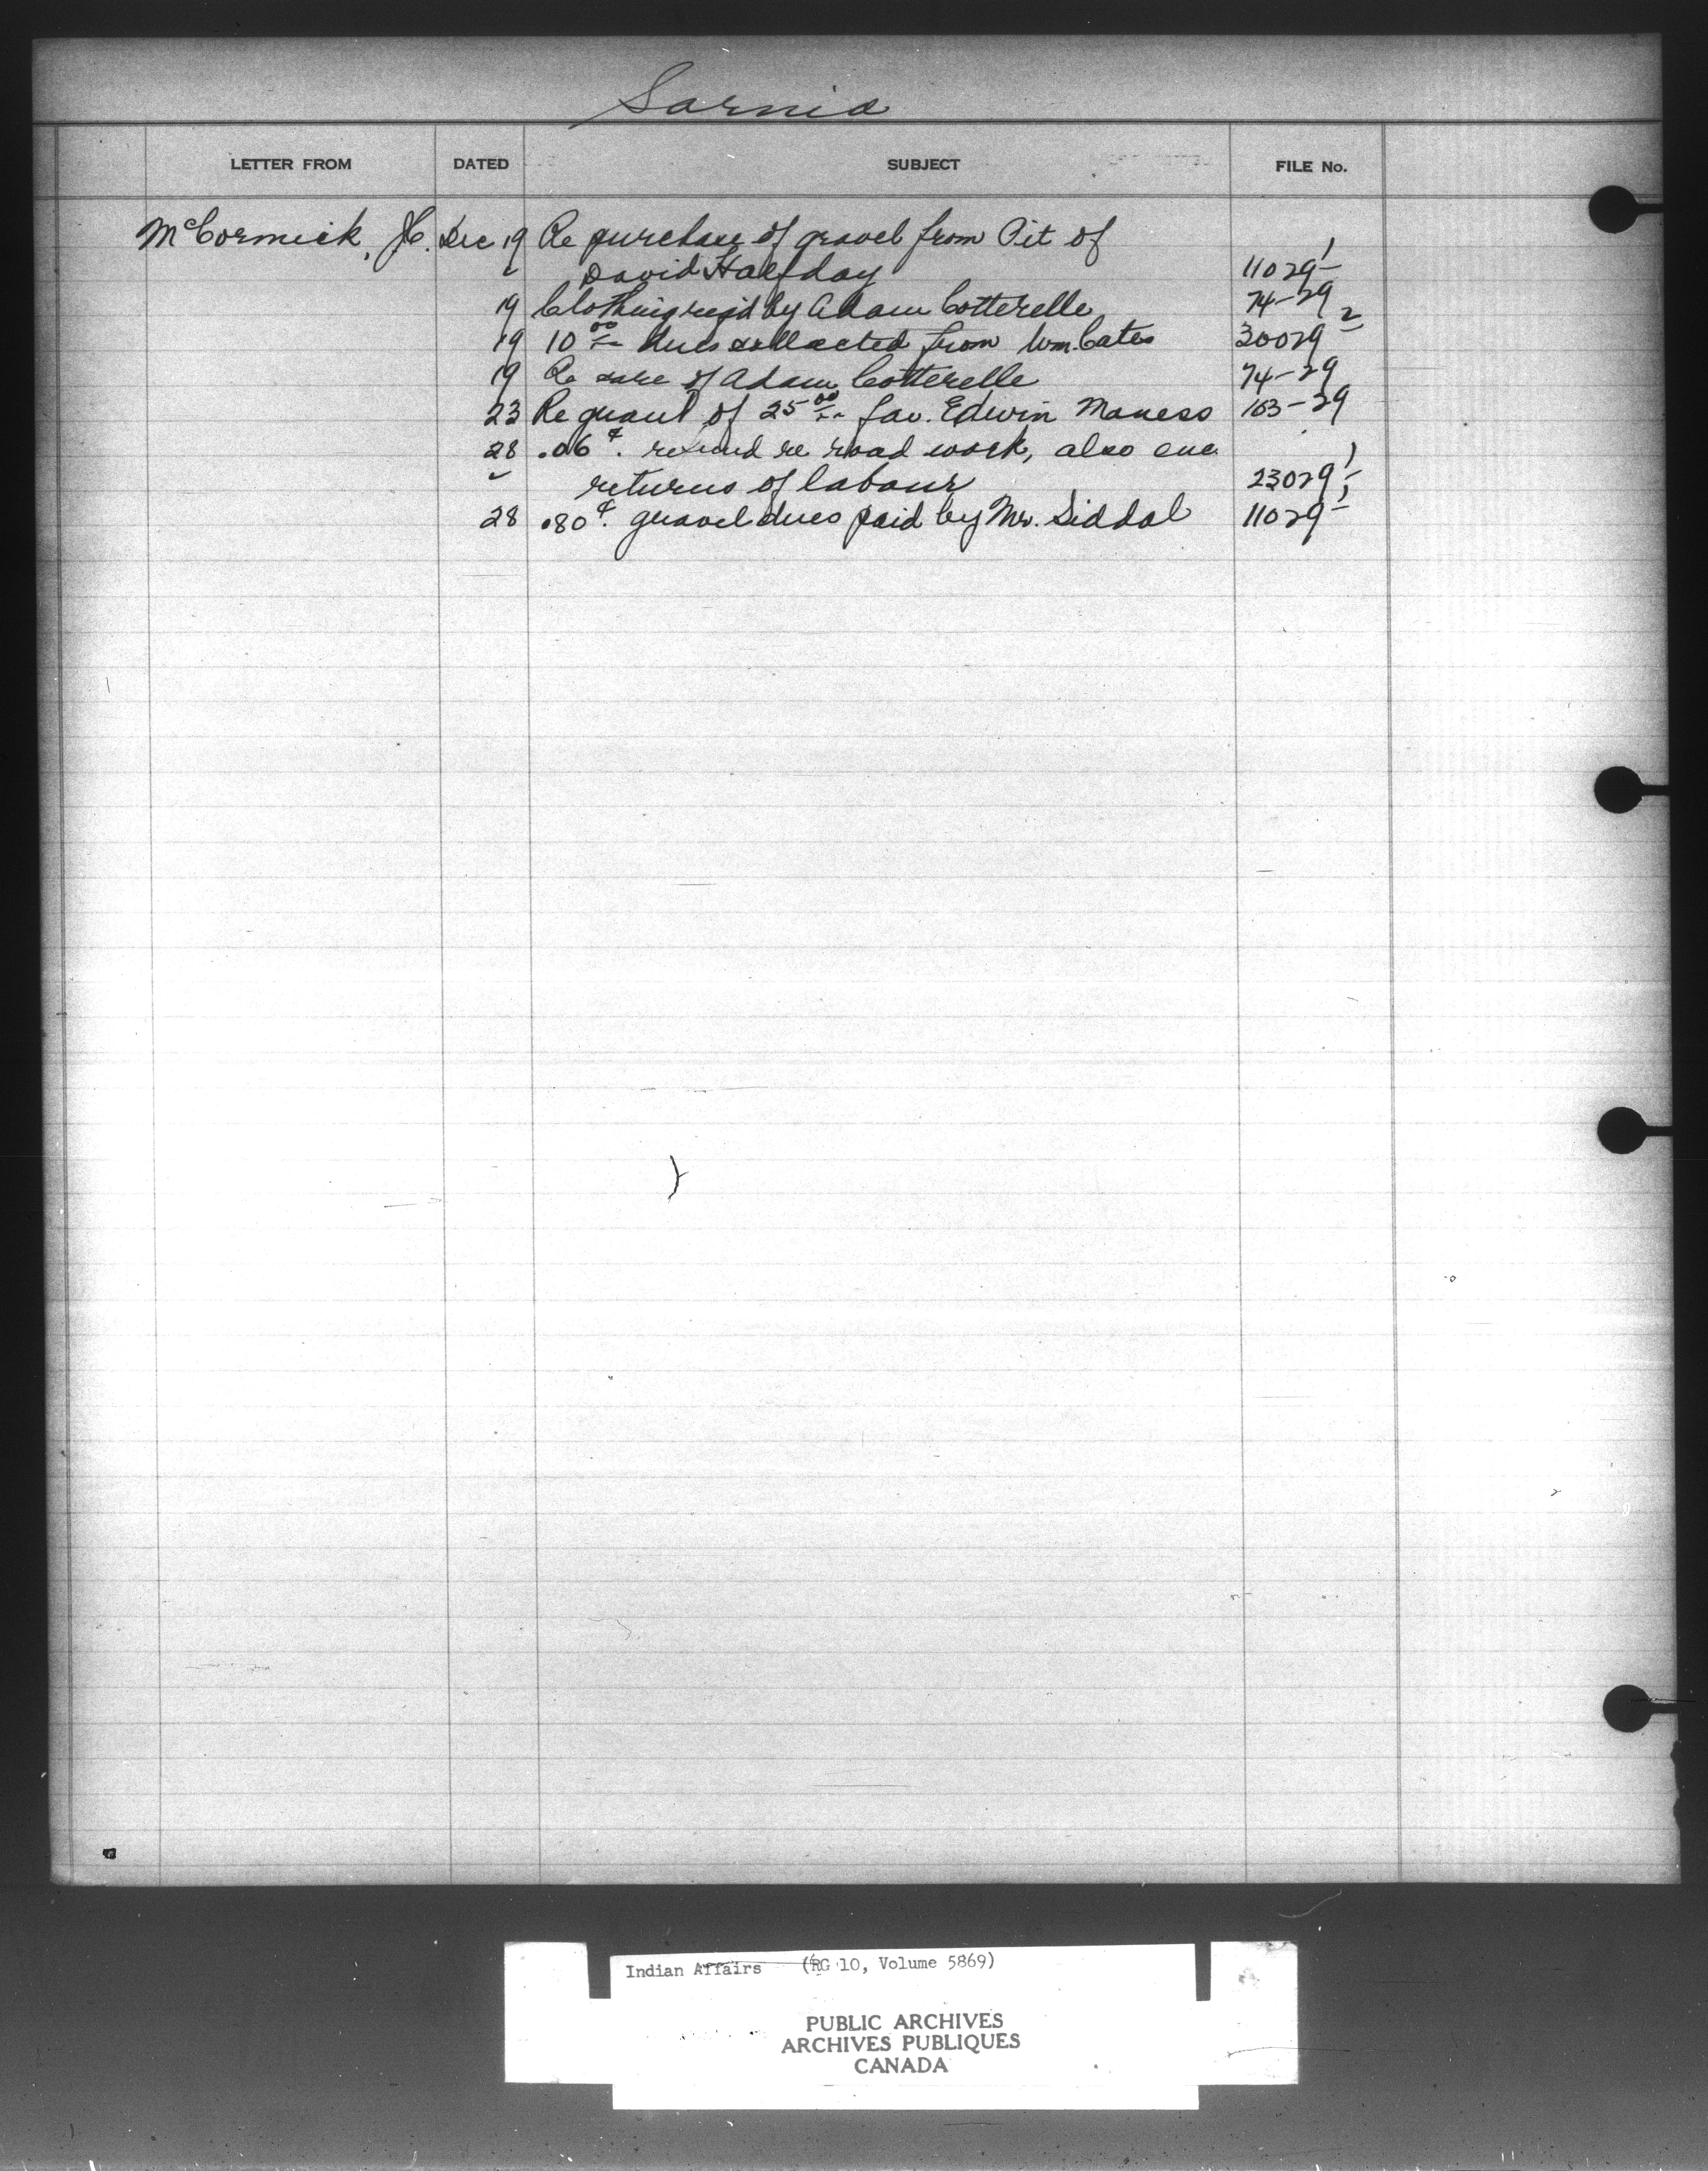 Sarnia
LETTER FROM DATED SUBJECT FILE No.
McCormick, J.C. Dec 19 Re purchase of gravel from Pit of
David Halfday 11029-1
19 Clothing req'd by Adam Cotterelle 74-29
19 10.00 dues collected from Wm. Cates 30029-2
19 Re care of Adam Cotterelle 74-29
23 Re grant of 25.00 fav. Edwin Maness 163-29
28 .06¢. refund re road work, also enc.
returns of labour 23029-1
28 .80¢. gravel dues paid by Mr. Siddal 11029-1
Indian Affairs (RG 10, Volume 5869)
PUBLIC ARCHIVES
ARCHIVES PUBLIQUES
CANADA